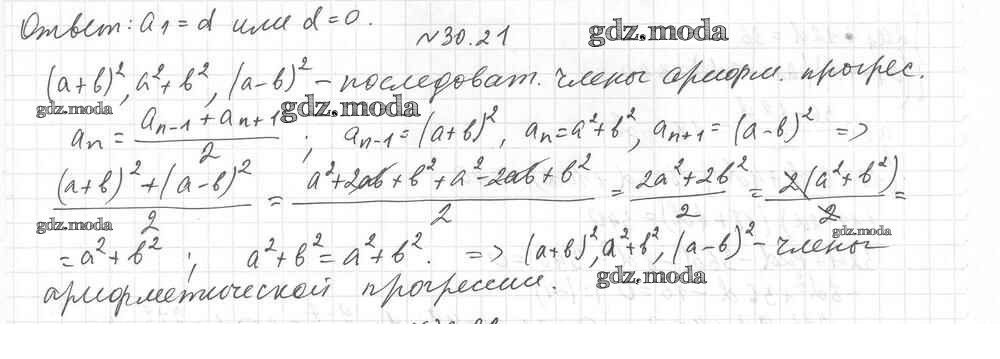 Ответ: a₁ = d или d = 0.
№30.21
gdz.moda
(a+b)², a²+b², (a−b)² – последоват. члены арифм. прогрес.
gdz.moda
gdz.moda
aₙ = (aₙ₋₁ + aₙ₊₁)/2 ; aₙ₋₁ = (a+b)², aₙ = a²+b², aₙ₊₁ = (a−b)² =>
((a+b)² + (a−b)²)/2 = (a²+2ab+b²+a²−2ab+b²)/2 = (2a²+2b²)/2 = 2(a²+b²)/2 =
gdz.moda
gdz.moda
= a²+b² ; a²+b² = a²+b². => (a+b)², a²+b², (a−b)² – члены
gdz.moda
арифметической прогрессии.